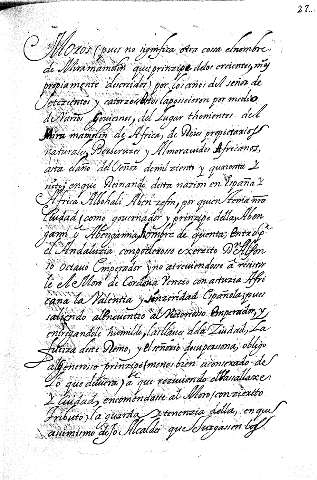 27.
Moros (pues no significa otra cosa el nombre
de Miramamolin que principe de los creientes, muy
propiamente
por los años del señor de
setecientos y catorze
por medio
de varios
del Lugar thenientes del
Miramamolin de Africa, de Reies propietarios
naturales,
y Almoravides Africanos,
asta el año del Señor de mil ziento y quarenta y
siete, en que Reinando desta nazion en España y
Africa
Aben zefin, por quien tenia mi
Ciudad (como governador y principe della)
Aben
gami o Abengamia, hombre de quenta; entro por
el Andaluzia con poderoso exercito Dn Alfon
so Octavo Emperador y no atreviendose a resistir
le el Moro de Cordova venzio con astuzia Afri
cana la Valentia y sinzeridad Española; pues
saliendo al encuentro al Victorioso Emperador, y
entregandole humilde, las llaves de la Ciudad, la
de este Reino, y el señorio de su persona, obligo
al generoso principe (menos bien aconsejado de
lo que deviera) a que reziviendo el Vasallaxe
y Ciudad, encomendasse al Moro (con zierto
tributo) la guarda y tenenzia della, en que
asimismo dejo Alcaldes que juzgassen los